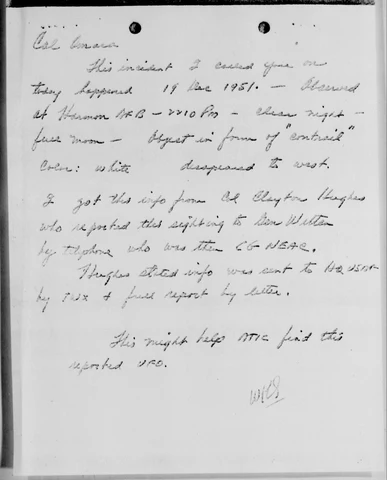 Col Omara
This incident I called you on
today happened 19 Dec 1951. — Observed
at Harmon AFB — 2210 PM — clear night —
full moon — Object in form of "contrail"
Color: white disapeared to west.
I got this info from Col Clayton Hughes
who reported this sighting to Gen Whitten
by telephone who was then CG NEAC.
Hughes stated info was sent to HQ USAF
by TWX & full report by letter.
This might help ATIC find this
reported UFO.